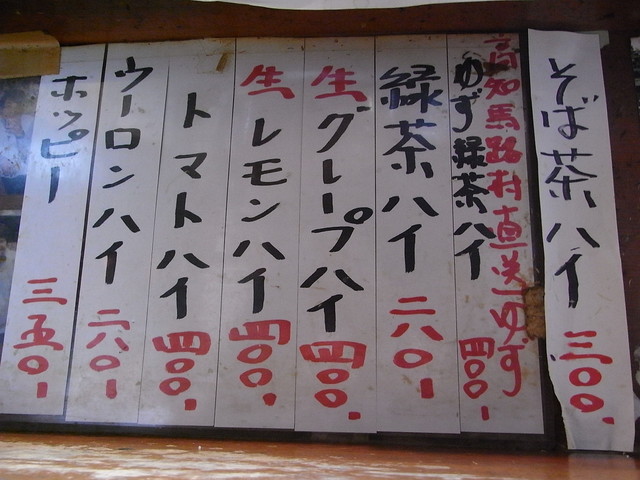 そば茶ハイ 三〇〇.
高知馬路村直送ゆず
ゆず緑茶ハイ 四〇〇-
緑茶ハイ 二八〇-
生グレープハイ 四〇〇.
生レモンハイ 四〇〇.
トマトハイ 四〇〇.
ウーロンハイ 二八〇-
ホッピー 三五〇-